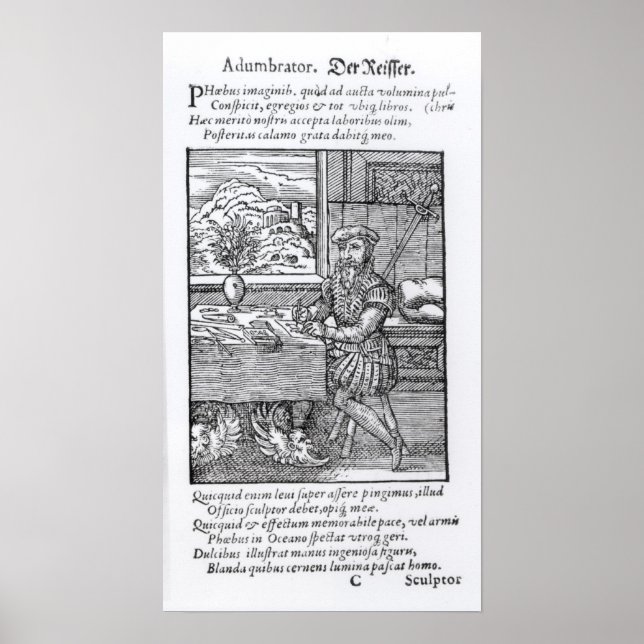 Adumbrator. Der Reisser.
PHœbus imaginib. quòd ad aucta volumina pul-
Conspicit, egregios & tot ubiq; libros. (chris
Hæc meritò nostris accepta laboribus olim,
Posteritas calamo grata dabitq; meo.
Quicquid enim leui super assere pingimus, illud
Officio sculptor debet, opiq; meæ.
Quicquid & effectum memorabile pace, vel armis
Phœbus in Oceano spectat vtroq; geri.
Dulcibus illustrat manus ingeniosa figuris,
Blanda quibus cernens lumina pascat homo.
C Sculptor